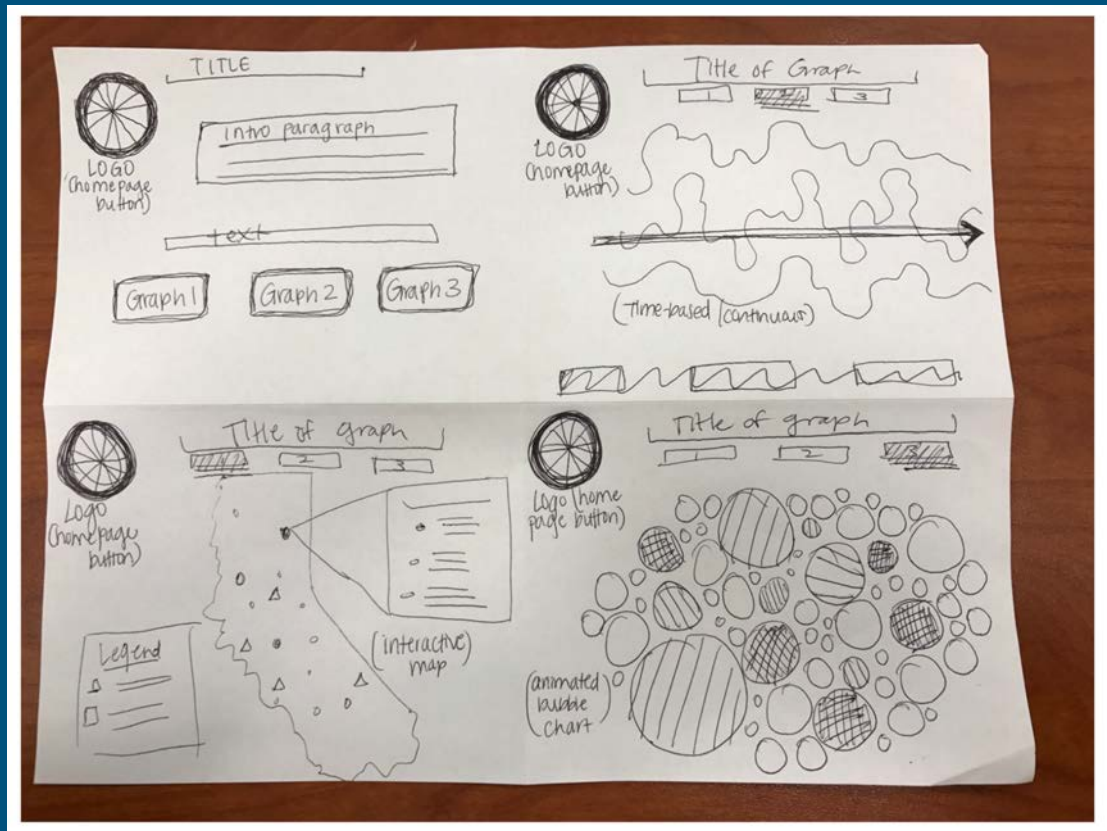 TITLE
LOGO
(homepage
button)
intro paragraph
text
Graph 1
Graph 2
Graph 3
Title of Graph
1
2
3
LOGO
(homepage
button)
(Time-based/continuous)
Title of graph
1
2
3
Logo
(homepage
button)
(interactive)
map
Legend
Title of graph
1
2
3
Logo (home
page button)
(animated
bubble
chart)